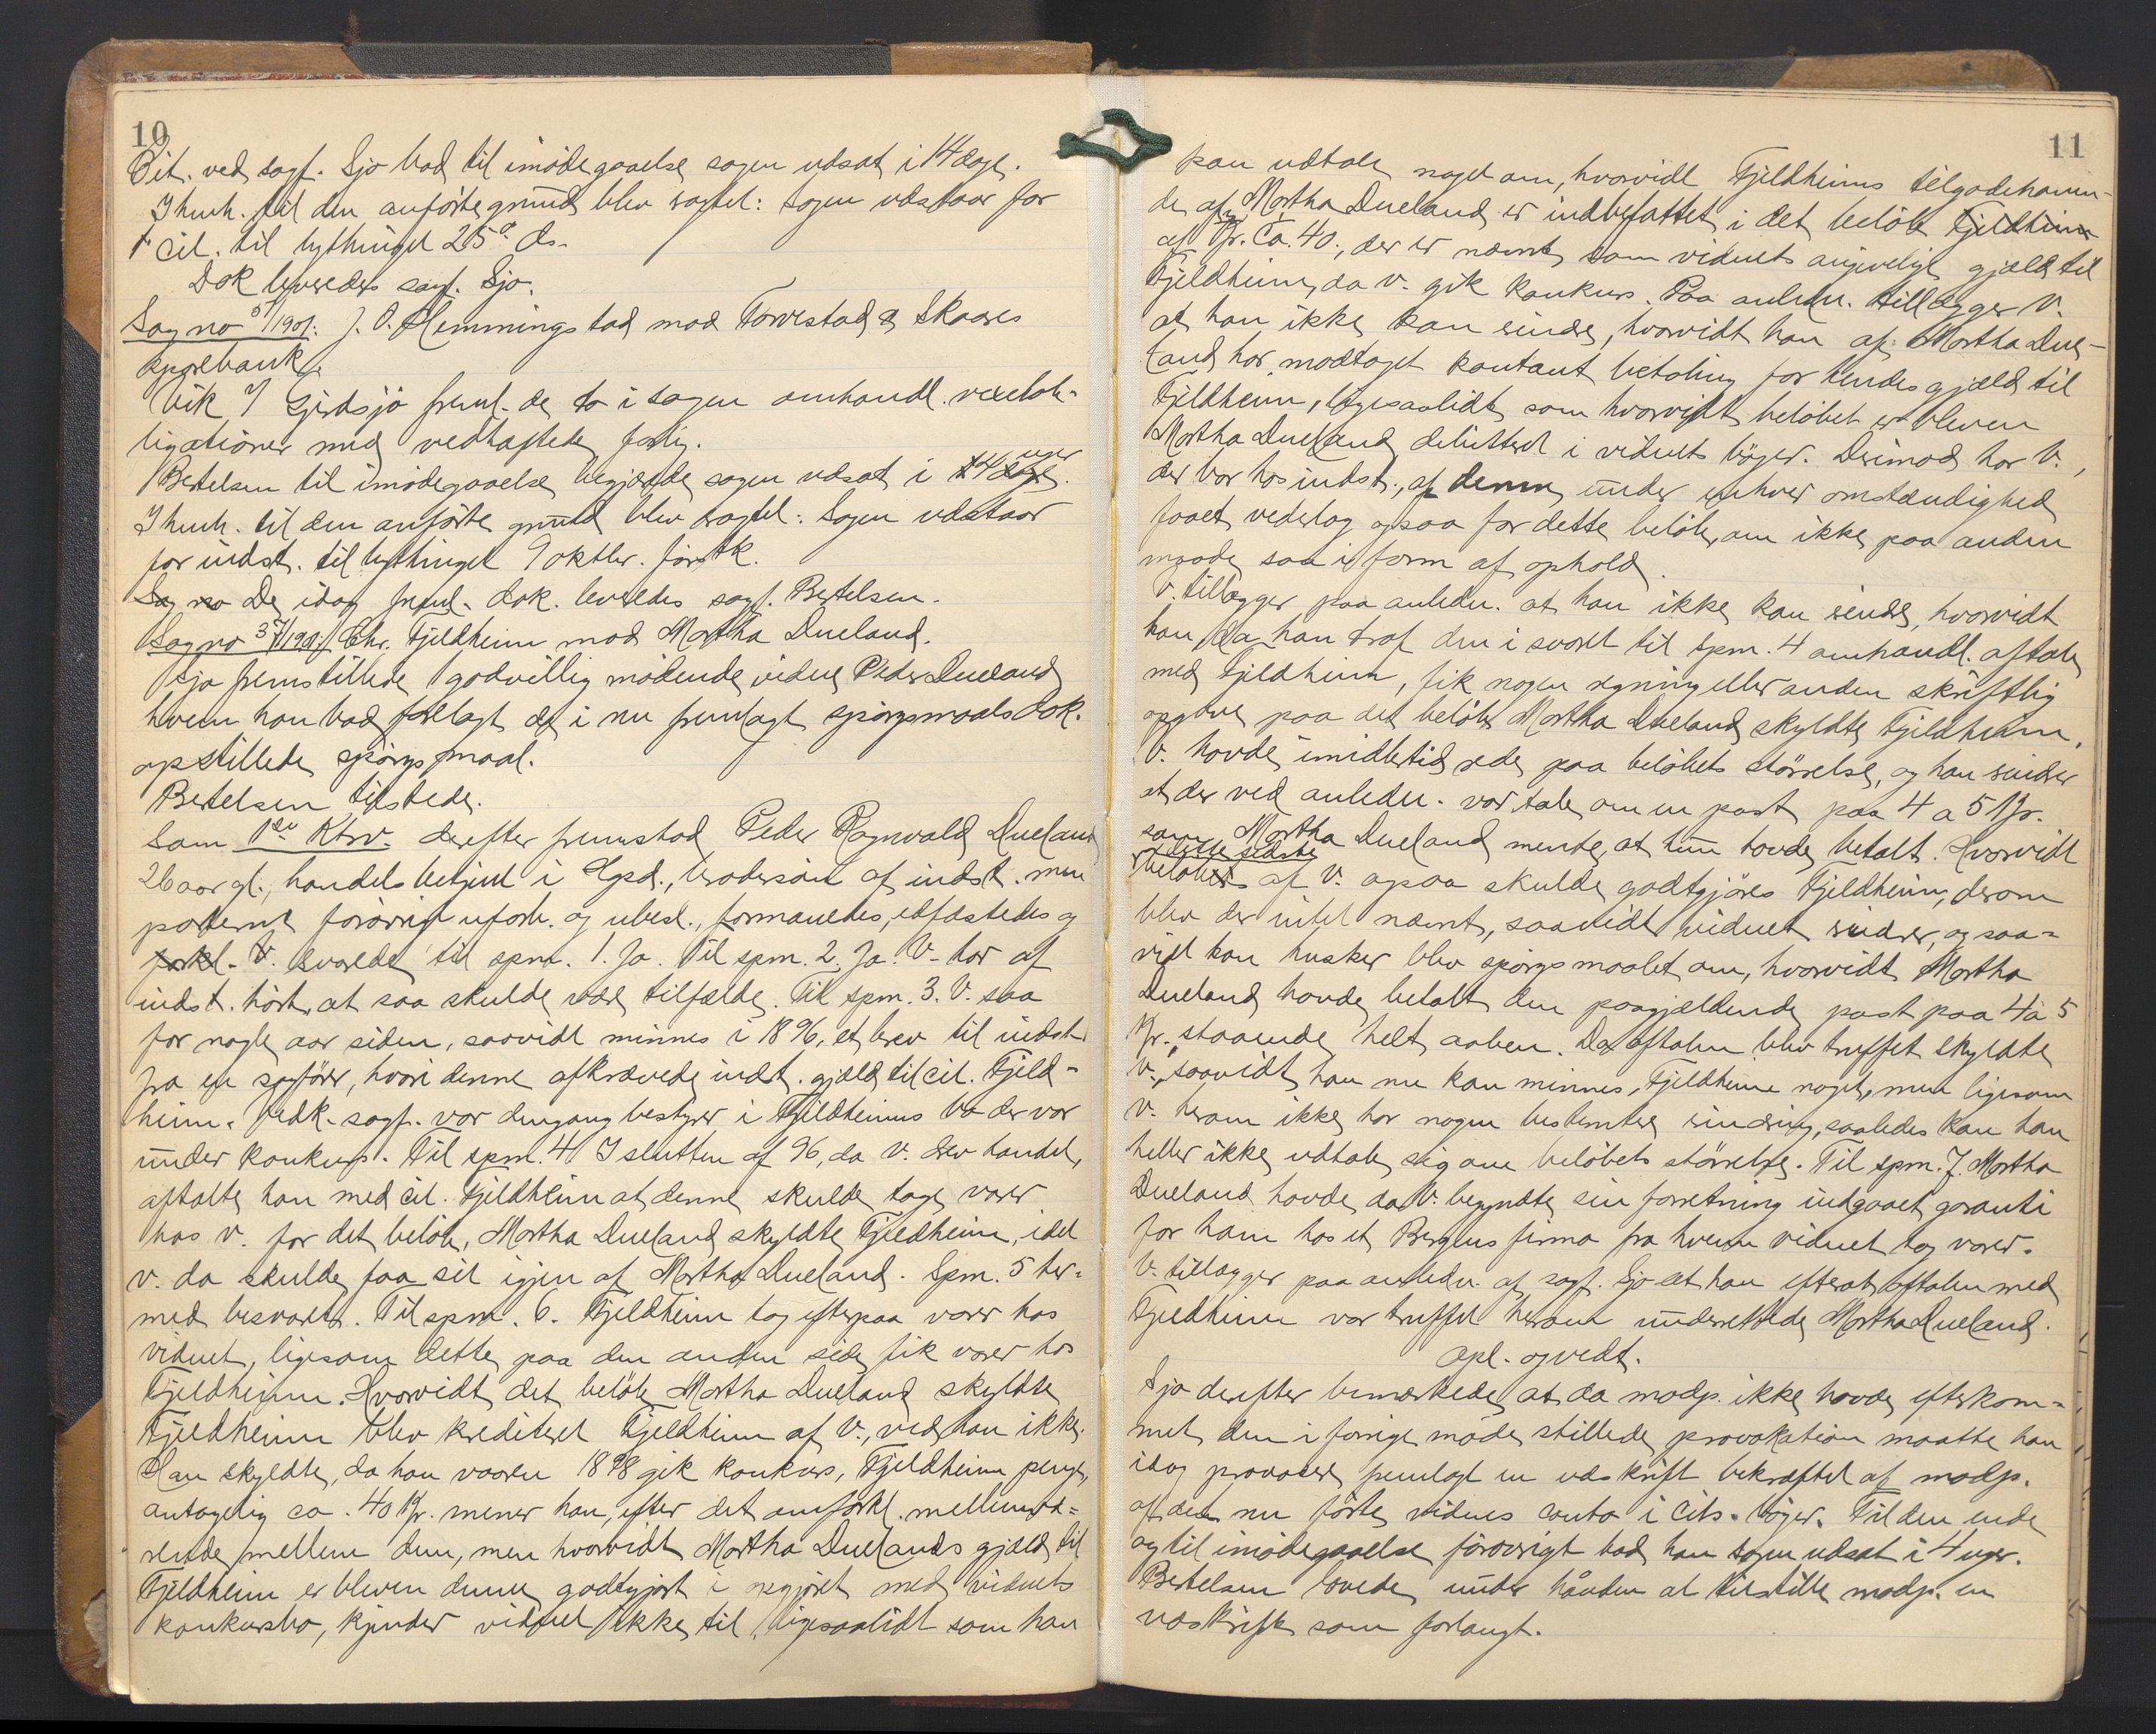 10
Cit. ved sagf. Sjo bad til imødegaaelse sagen udsat i 14 dage.
I henh. til den anførte grund blev ragtet: Sagen udstaar for
cit. til bythinget 25de ds.
Dok leveredes sagf. Sjo.
Sag no 5/1901: J. O. Flemmingstad mod Torvestad & Skaares
sparebank.
Vik f/ Gjerdsjø freml. de to i sagen omhandl. vexelob-
ligationer med vedhæftede forlig.
Bertelsen til imødegaaelse begjærede sagen udsat i 14 dage. uger
I henh. til den anførte grund blev ragtet: Sagen udstaar
for indst. til bythinget 9 oktbr. førstk.
Sag no De idag freml. dok. leveredes sagf. Bertelsen.
Sag no 37/1901: Chr. Fjeldheim mod Martha Dueland.
Sjo fremstillede godvillig mødende vidne Peder Dueland
hvem han bad forelagt de i nu fremlagt spørgsmaalsdok.
opstillede spørgsmaal.
Bertelsen tilstede.
Som 1ste Ktrv. derefter fremstod Peder Ragnvald Dueland
26 aar gl., handelsbetjent i Hgsd., brodersøn af indst. men
paterne forøvrigt uforb. og ubesl., formanedes, edfæstedes og
forkl. V. svarede til spm. 1. Ja. Til spm. 2. Ja. V. har af
indst. hørt, at saa skulde være tilfælde. Til spm. 3. V. saa
for nogle aar siden, saavidt minnes i 1896, et brev til indst.
fra en sagfører, hvori denne afkrævede indst. gjæld til cit. Fjeld-
heim. Vedk. sagf. var dengang bestyrer i Fjeldheims bo der var
under konkurs. Til spm. 4 I slutten af 96, da V. drev handel,
aftalte han med cit. Fjeldheim at denne skulde tage varer
hos v. for det beløb, Martha Dueland skyldte Fjeldheim, idet
v. da skulde faa sit igjen af Martha Dueland. Spm. 5 her-
med besvaret. Til spm. 6. Fjeldheim tog efterpaa varer hos
vidnet, ligesom dette paa den anden side fik varer hos
Fjeldheim. Hvorvidt det beløb Martha Dueland skyldte
Fjeldheim blev krediteret Fjeldheim af V., ved han ikke.
Han skyldte, da han vaaren 1898 gik konkurs, Fjeldheim penge,
antagelig ca. 40 Kr. mener han, efter det anførte mellemvæ-
rende mellem dem, men hvorvidt Martha Duelands gjæld til
Fjeldheim er bleven denne godtgjort i opgjøret med vidnets
konkursbo, kjender vidnet ikke til, ligesaalidt som han
11
kan udtale noget om, hvorvidt Fjeldheims tilgodehaven-
de af Martha Dueland er indbefattet i det beløb Fjeldheim
af Kr. Ca. 40., der er nævnt som vidnets angivelige gjæld til
Fjeldheim, da v. gik konkurs. Paa anledn. tillægger V.
at han ikke kan erindre, hvorvidt han af Martha Due-
land har modtaget kontant betaling for hendes gjæld til
Fjeldheim, ligesaalidt som hvorvidt beløbet er bleven
Martha Dueland debitteret i vidnets bøger. Derimod har V.,
der bor hos indst., af denne under enhver omstændighed
faaet vederlag ogsaa for dette beløb, om ikke paa anden
maade saa i form af ophold.
V. tillægger paa anledn. at han ikke kan erindre, hvorvidt
han, da han traf den i svaret til spm. 4 omhandl. aftale
med Fjeldheim, fik nogen regning eller anden skriftlig
opgave paa det beløb Martha Dueland skyldte Fjeldheim.
V. havde imidlertid rede paa beløbets størrelse, og han erindrer
at der ved anledn. var tale om en post paa 4 a 5 Kr.
som Martha Dueland mente, at hun havde betalt. Hvorvidt
dette sidste
beløbet af V. ogsaa skulde godtgjøres Fjeldheim, derom
blev der intet nævnt, saavidt vidnet erindrer, og saa-
vidt han husker blev spørgsmaalet om, hvorvidt Martha
Dueland havde betalt den paagjældende post paa 4 à 5
Kr. staaende helt aaben. Da aftalen blev truffet skyldte
V., saavidt han nu kan minnes, Fjeldheim noget, men ligesom
V. herom ikke har nogen bestemtere erindring, saaledes kan han
heller ikke udtale sig om beløbets størrelse. Til spm. 7. Martha
Dueland havde, da V. begyndte sin forretning indgaaet garanti
for ham hos et Bergens firma fra hvem vidnet tog varer.
V. tillægger paa anledn. af sagf. Sjo at han efterat aftalen med
Fjeldheim var truffet herom underrettede Martha Dueland.
Opl. og vedt.
Sjo derefter bemærkede, at da modp. ikke havde efterkom-
met den i forrige møde stillede provokation maatte han
idag provocere fremlagt en udskrift bekræftet af modp.
af den nu førte vidnes conto i cits. bøger. Til den ende
og til imødegaaelse forøvrigt bad han sagen udsat i 4 uger.
Bertelsen lovede under hånden at tilstille modp. en
udskrift som forlangt.